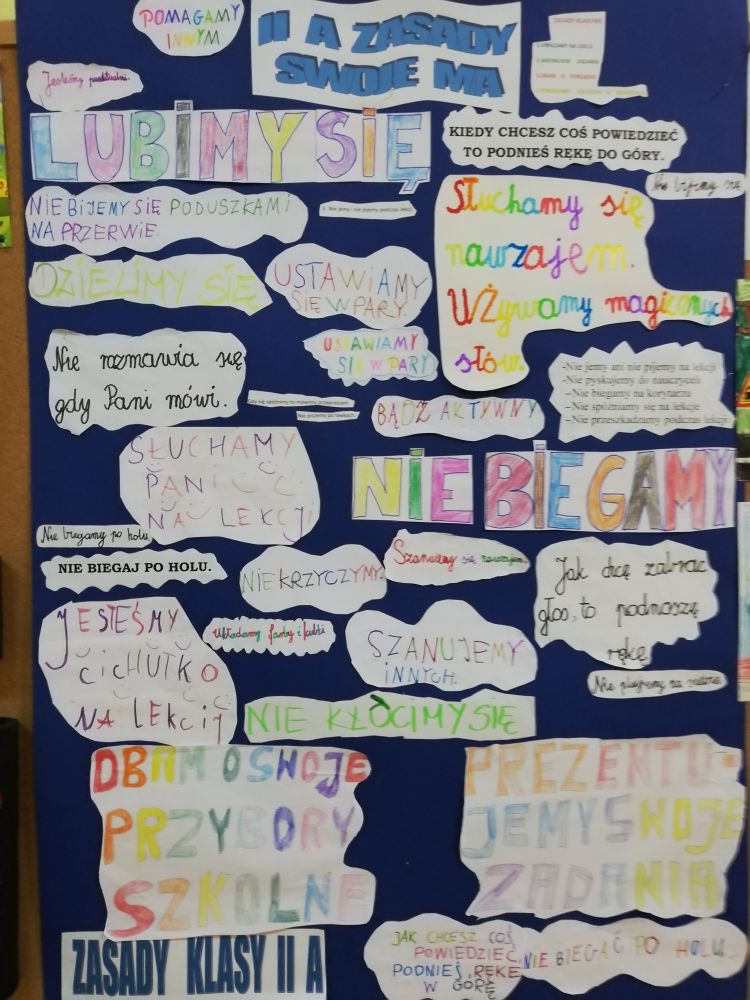 POMAGAMY
INNYM
II A ZASADY
SWOJE MA
ZASADY KLASOWE
Jesteśmy punktualni.
LUBIMY SIĘ
KIEDY CHCESZ COŚ POWIEDZIEĆ
TO PODNIEŚ RĘKE DO GÓRY.
Nie bijemy się
NIE BIJEMY SIĘ PODUSZKAMI
NA PRZERWIE.
Słuchamy się
nawzajem.
Używamy magicznych
słów.
DZIELIMY SIĘ
USTAWIAMY
SIĘ W PARY.
USTAWIAMY
SIĘ W PARY
Nie rozmawia się
gdy Pani mówi.
-Nie jemy ani nie pijemy na lekcji
-Nie pyskujemy do nauczycieli
– Nie biegamy na korytarzu
– Nie spóźniamy się na lekcje
– Nie przeszkadzamy podczas lekcji
BĄDŹ AKTYWNY
SŁUCHAMY
PANI
NA LEKCJI
NIE BIEGAMY
Nie biegamy po holu
NIE BIEGAJ PO HOLU.
NIE KRZYCZYMY.
Szanujemy się nawzajem.
Jak chcę zabrać
głos, to podnoszę
rękę
JESTEŚMY
CICHUTKO
NA LEKCJI
Układamy farby i kubki
SZANUJEMY
INNYCH.
Nie plujemy na
NIE KŁÓCIMY SIĘ
DBAM O SWOJE
PRZYBORY
SZKOLNE
PREZENTU-
JEMY SWOJE
ZADANIA
ZASADY KLASY II A
JAK CHCESZ COŚ
POWIEDZIEĆ,
PODNIEŚ RĘKE
W GÓRĘ
NIE BIEGAĆ PO HOLU.